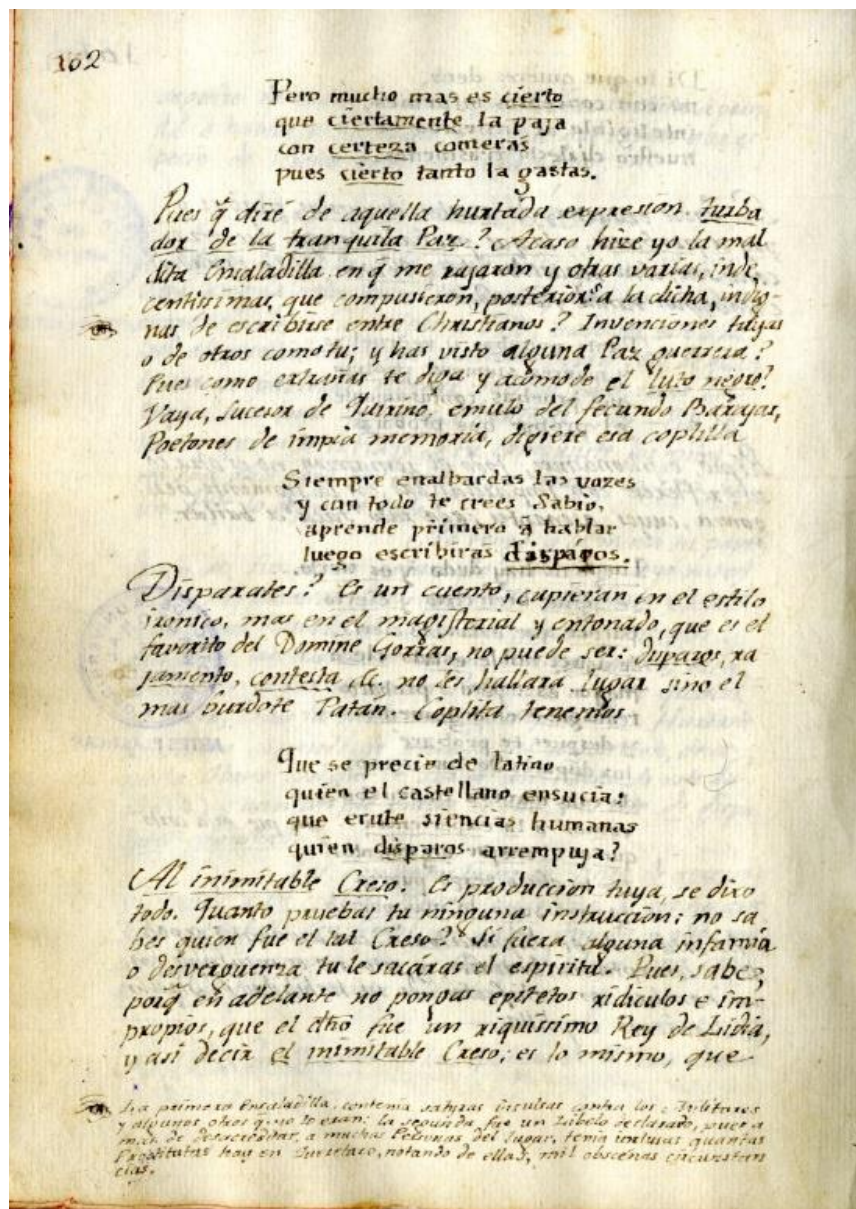 102
Pero mucho mas es cierto
que ciertamente la paja
con certeza comerás
pues cierto tanto la gastas.
Pues q̃ diré de aquella hurtada expresion turba
dor de la tranquila Paz? Acaso hize yo la mal
dita Ensaladilla en q̃ me rajaron y otras varias, inde
centissimas, que compusieron, posterior.s a la dicha, indig-
nas de escribirse entre Christianos? Invenciones tuyas
o de otros como tu; y has visto alguna Paz guerrera?
Pues como extrañas te diga y acomode el luto negro?
Vaya, sucesor de Quirino, emulo del fecundo Barajas,
Poetones de impia memoria, digiere esa coplilla
Siempre enalbardas las vozes
y con todo te crees Sabio,
aprende primero á hablar
luego escribiras disparos.
Disparates? Es un cuento, cupieran en el estilo
ironico, mas en el magisterial y entonado, que es el
favorito del Domine Gorras, no puede ser: disparos, ra
jamento, contesta &c. no les hallara lugar sino el
mas burdote Patán. Coplita tenemos
Que se precie de latino
quien el castellano ensucia:
que erute siencias humanas
quien disparos arrempuja?
Al inimitable Creso. Es produccion tuya, se dixo
todo. Quanto pruebas tu ninguna instruccion: no sa
bes quien fue el tal Creso? Si fuera alguna infamia
o desverguenza tu le sacáras el espiritu. Pues, sabe,
porq̃ en adelante no pongas epitetos ridiculos e im-
propios, que el dho fue un riquissimo Rey de Lidia,
y asi decir el inimitable Creso, es lo mismo, que
La primera Ensaladilla, contenia satyras insulsas contra los Militares
y algunos otros q no lo eran: la segunda, fue un Libelo declarado, pues a
mas de desacreditar, a muchas Personas del Lugar, tenia inclusas quantas
Prostitutas hay en notando de ellas, mil obscenas circunstan
cias.